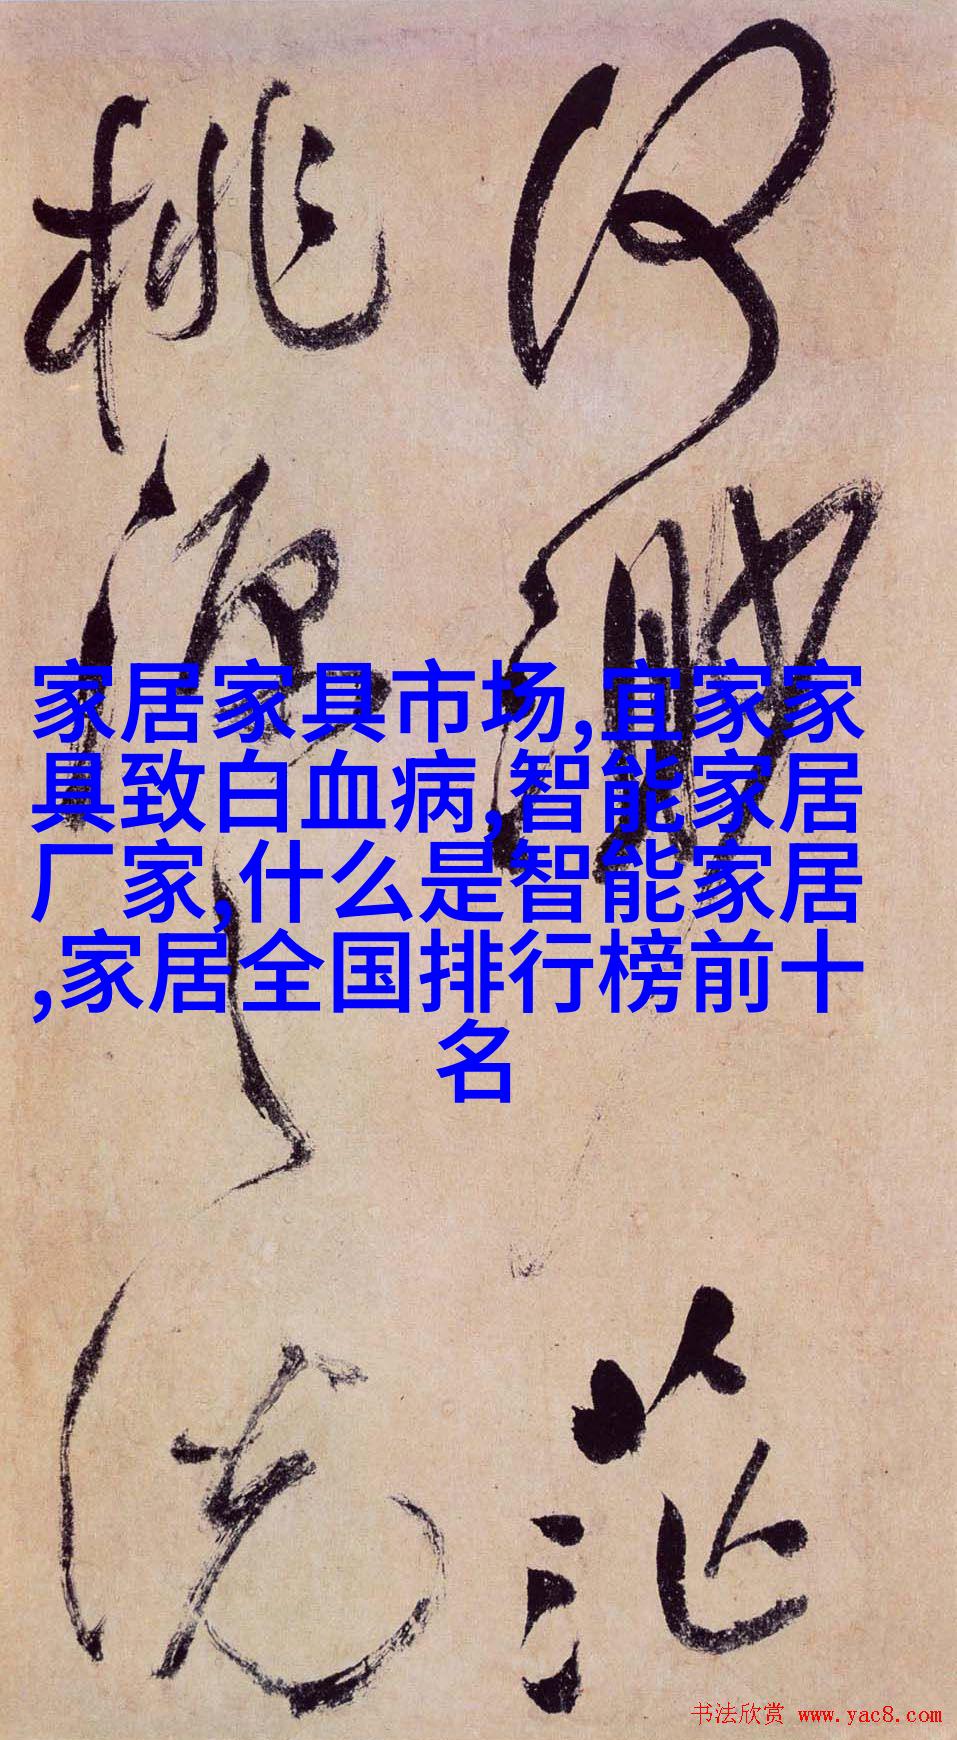 何渺茫
桃源之说
家居家具市场,宜家家
具致白血病,智能家居
厂家,什么是智能家居
,家居全国排行榜前十
名
书法欣赏 www.yac8.com